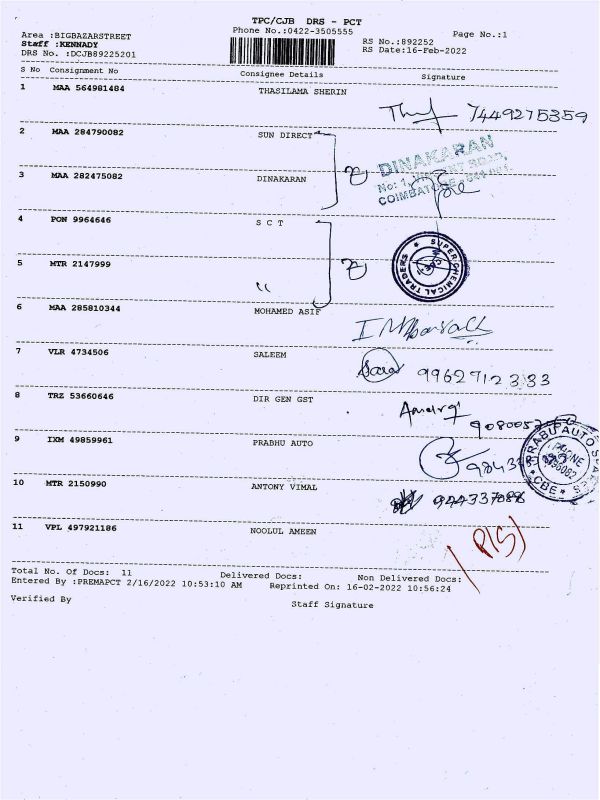 TPC/CJB DRS - PCT
Area :BIGBAZARSTREET Phone No.:0422-3505555 Page No.:1
Staff :KENNADY RS No.:892252
DRS No. :DCJB89225201 RS Date:16-Feb-2022
S No Consignment No Consignee Details Signature
1 MAA 564981484 THASILAMA SHERIN 7449275359
2 MAA 284790082 SUN DIRECT
3 MAA 282475082 DINAKARAN DINAKARAN
COIMBATORE
4 PON 9964646 S C T
5 MTR 2147999 " SUPER CHEMICAL TRADERS CBE
6 MAA 285810344 MOHAMED ASIF
7 VLR 4734506 SALEEM 9962712333
8 TRZ 53660646 DIR GEN GST
9 IXM 49859961 PRABHU AUTO PRABU AUTO PHONE CBE
10 MTR 2150990 ANTONY VIMAL
11 VPL 497921186 NOOLUL AMEEN
Total No. Of Docs: 11 Delivered Docs: Non Delivered Docs:
Entered By :PREMAPCT 2/16/2022 10:53:10 AM Reprinted On: 16-02-2022 10:56:24
Verified By Staff Signature